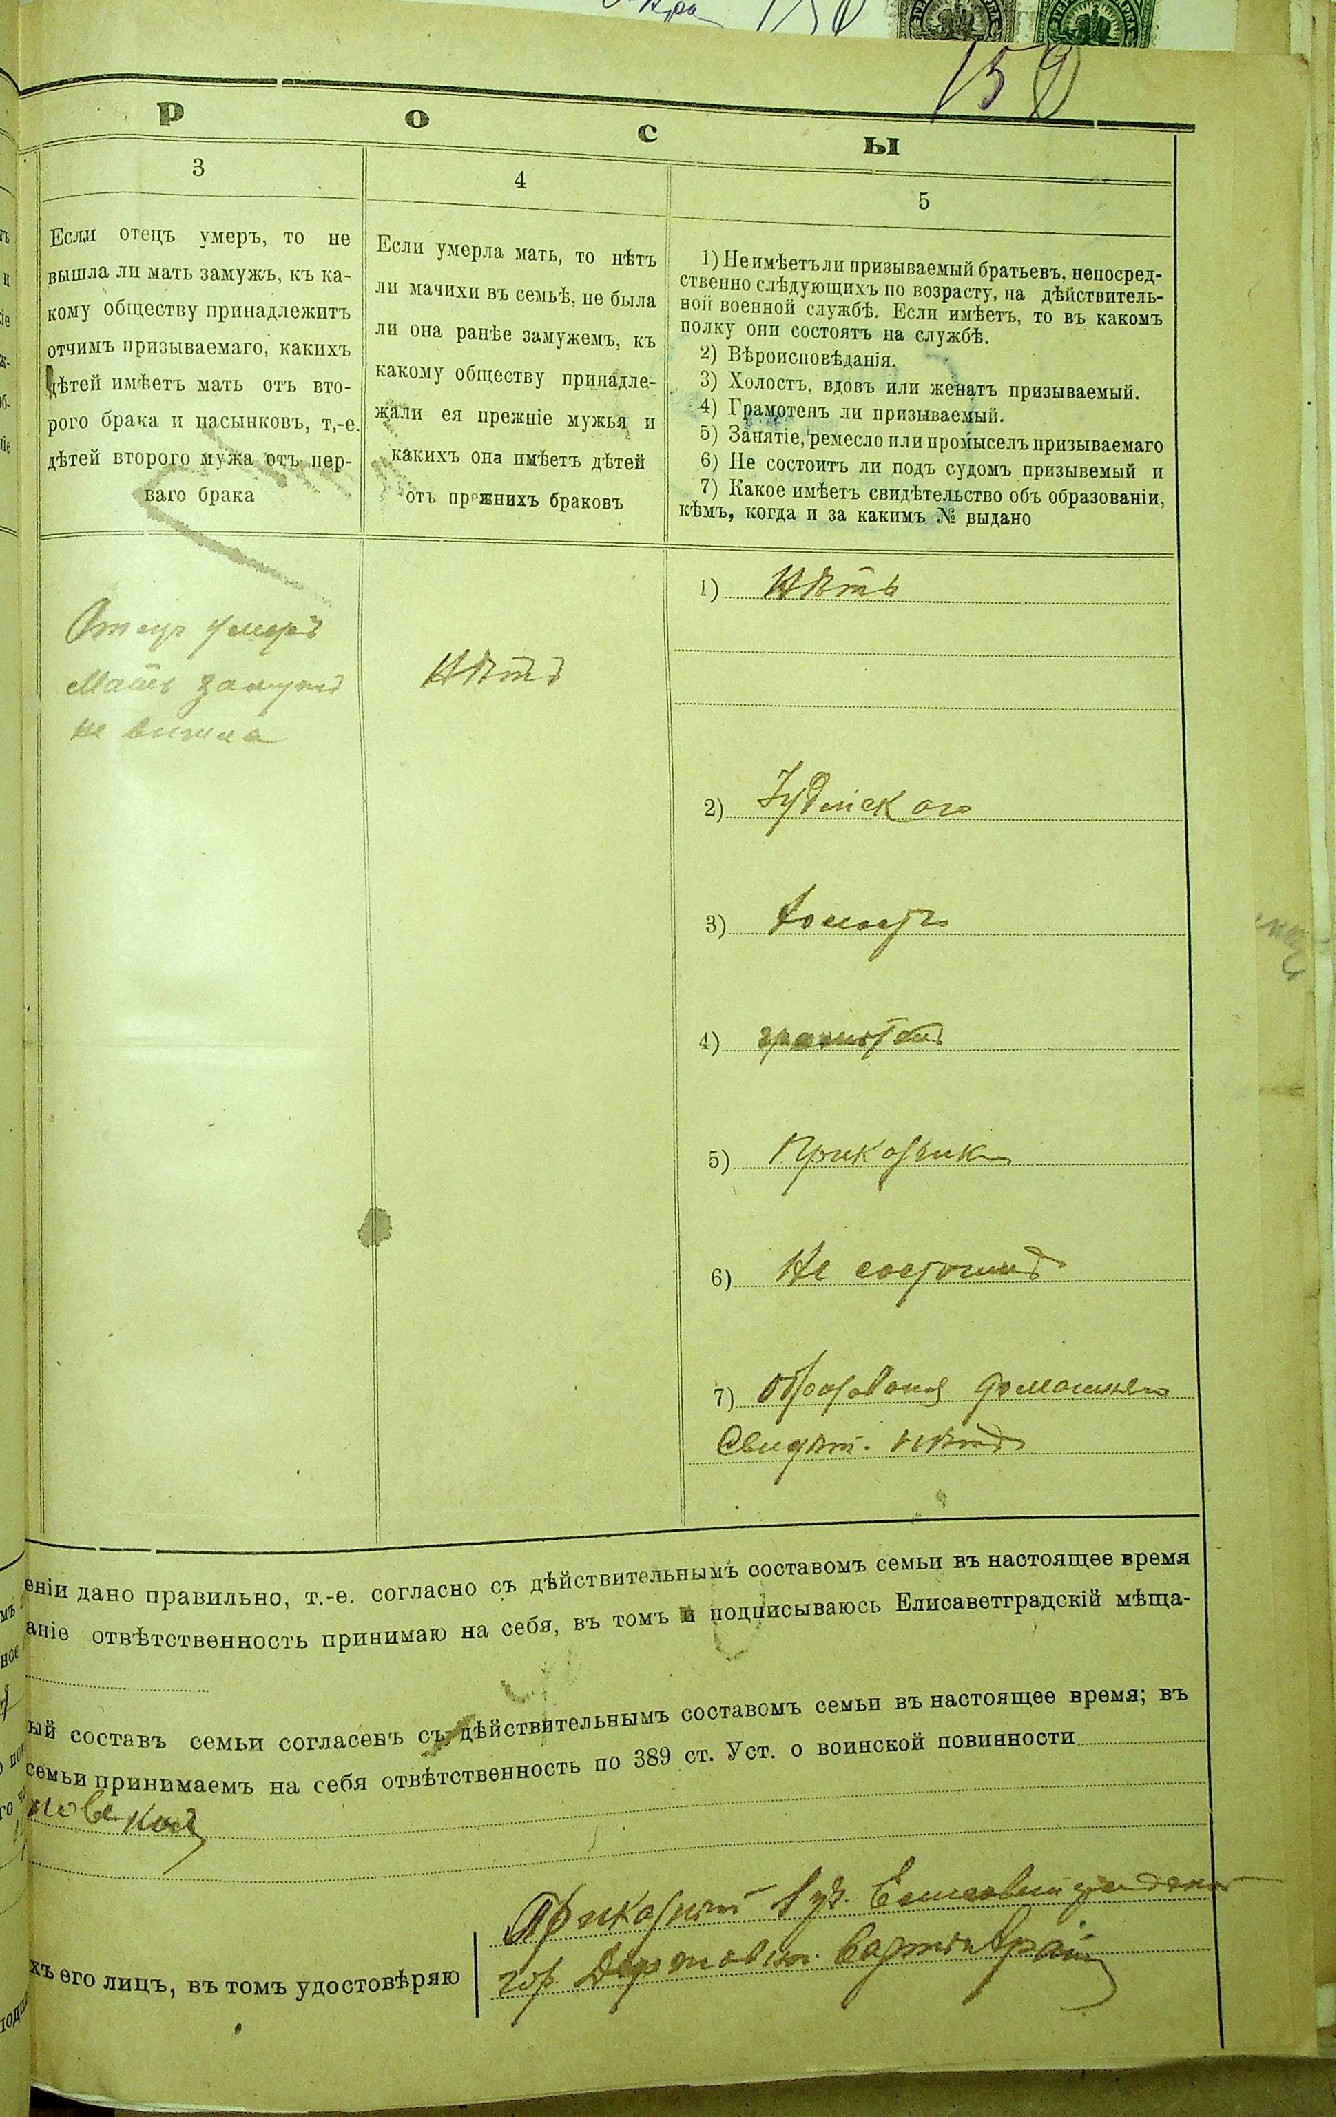 159
р о с ы
3
Если отецъ умеръ, то не
вышла ли мать замужъ, къ ка-
кому обществу принадлежитъ
отчимъ призываемаго, какихъ
дѣтей имѣетъ мать отъ вто-
рого брака и пасынковъ, т,-е.
дѣтей второго мужа отъ пер-
ваго брака
4
Если умерла мать, то нѣтъ
ли мачихи въ семьѣ, не была
ли она ранѣе замужемъ, къ
какому обществу принадле-
жали ея прежніе мужья и
какихъ она имѣетъ дѣтей
отъ прежнихъ браковъ
5
1) Не имѣетъ ли призываемый братьевъ, непосред-
ственно слѣдующихъ по возрасту, на дѣйствитель-
ной военной службѣ. Если имѣетъ, то въ какомъ
полку они состоятъ на службѣ.
2) Вѣроисповѣданія.
3) Холостъ, вдовъ или женатъ призываемый.
4) Грамотенъ ли призываемый.
5) Занятіе, ремесло или промыселъ призываемаго
6) Не состоитъ ли подъ судомъ призывемый и
7) Какое имѣетъ свидѣтельство объ образованіи,
кѣмъ, когда и за какимъ № выдано
Отецъ умеръ
Мать замужъ
не вишла
Нѣтъ
1) Нѣтъ
2) Іудейского
3) Холостъ
4) грамотенъ
5) Приказчикъ
6) Не состоитъ
7) образования домашняго
Свидѣт. нѣтъ
еніи дано правильно, т.-е. согласно съ дѣйствительнымъ составомъ семьи въ настоящее время
аніе отвѣтственность принимаю на себя, въ томъ и подписываюсь Елисаветградскій мѣща-
ый составъ семьи согласенъ съ дѣйствительнымъ составомъ семьи въ настоящее время; въ
семьи принимаемъ на себя отвѣтственность по 389 ст. Уст. о воинской повинности
хъ его лицъ, въ томъ удостовѣряю
гор